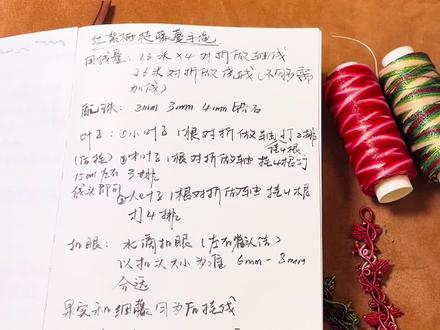 红紫荆花藤蔓手绳
用线量:1.3米×4对折做轴线
2.6米对折做绕线(不够需
加线)
配珠:2mm 3mm 4mm 钻石
叶子:①小叶子1根对折做轴打2排
挂4根
(后挂)②中叶子1根对折做轴挂4根打
15cm左右 3排
线头即可 ③大叶子1根对折做轴挂4根
打4排
扣眼:水滴扣眼(左右雀头结)
以扣头大小为准 6mm-8mm
合适
果实和细藤因为后挂线